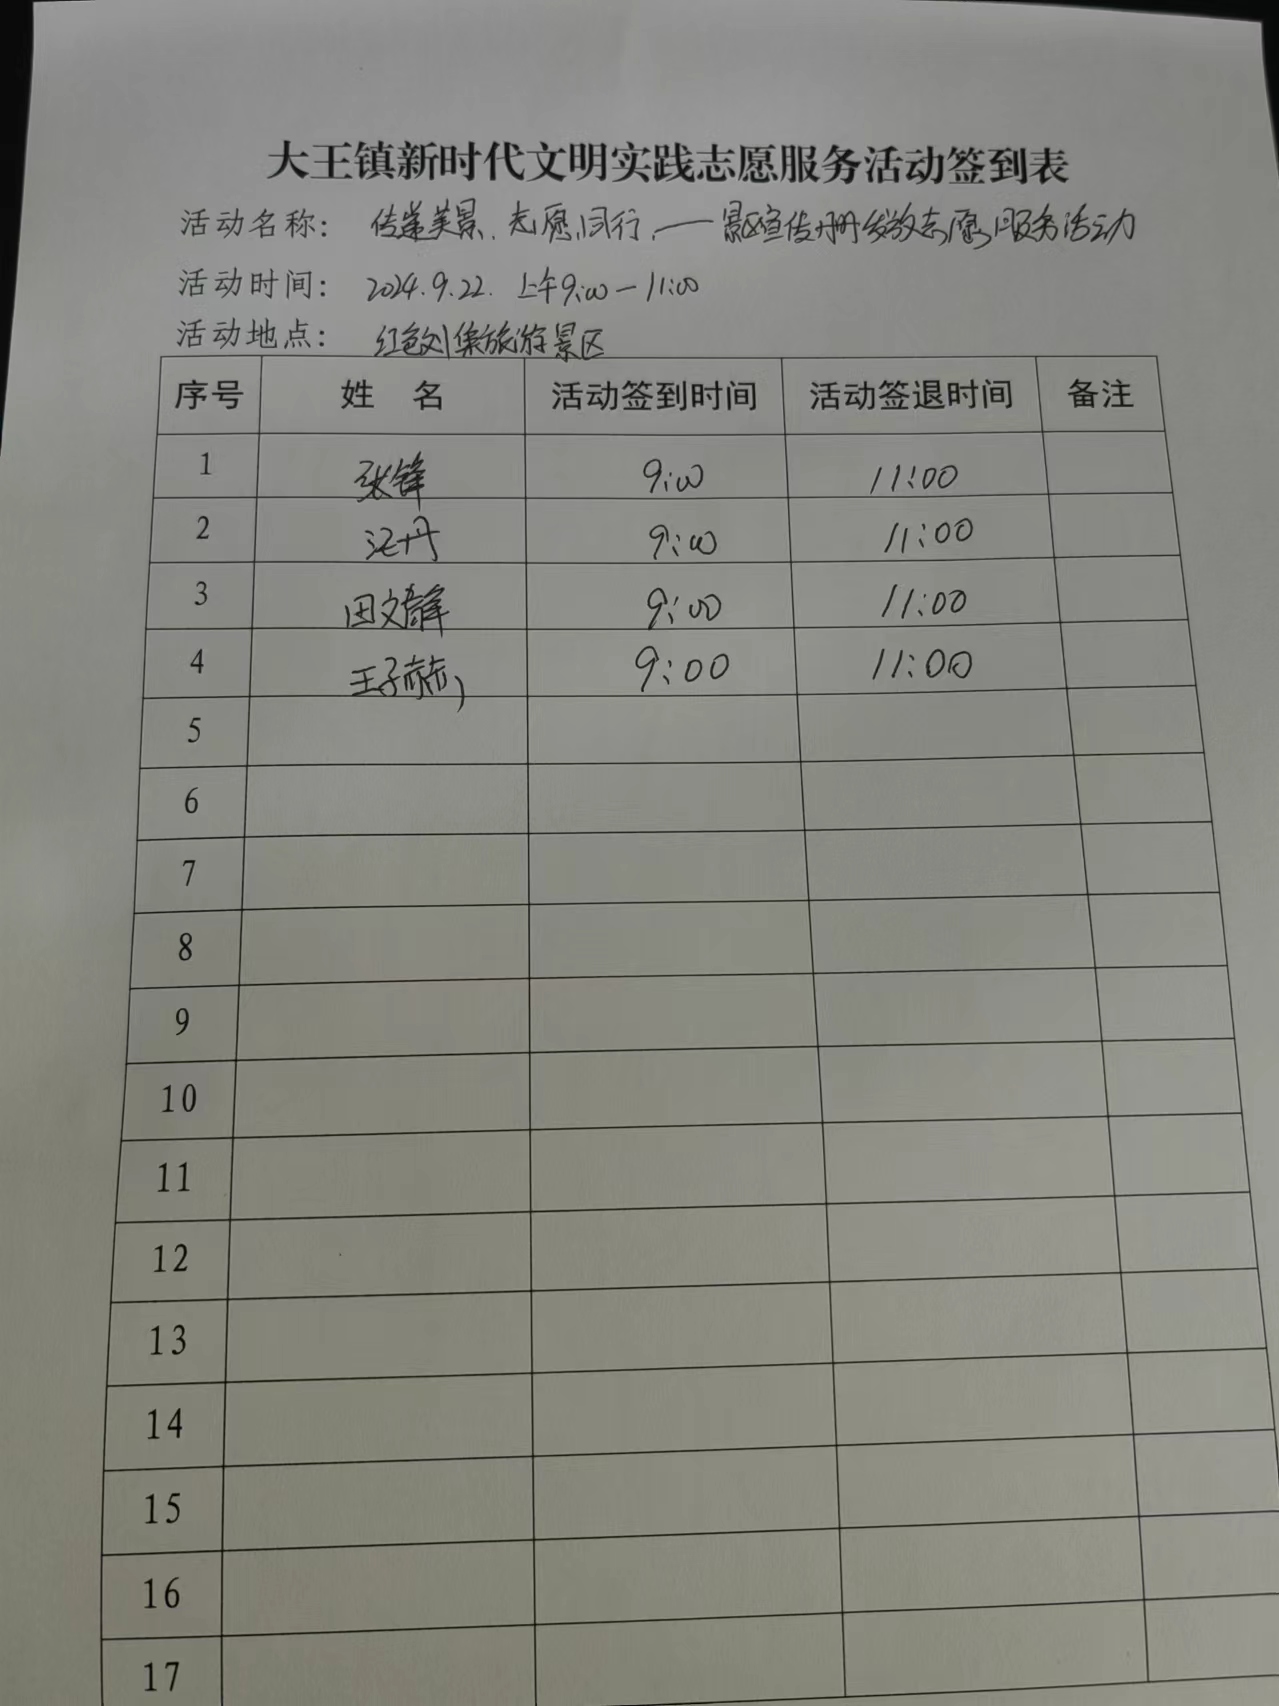 大王镇新时代文明实践志愿服务活动签到表
活动名称: 传递美景、志愿同行、——景区宣传册发放志愿服务活动
活动时间: 2024.9.22. 上午9:00—11:00
活动地点: 红色刘集旅游景区
序号 姓 名 活动签到时间 活动签退时间 备注
1 张锋 9:00 11:00
2 汪丹 9:00 11:00
3 田文静 9:00 11:00
4 王子赫 9:00 11:00
5
6
7
8
9
10
11
12
13
14
15
16
17